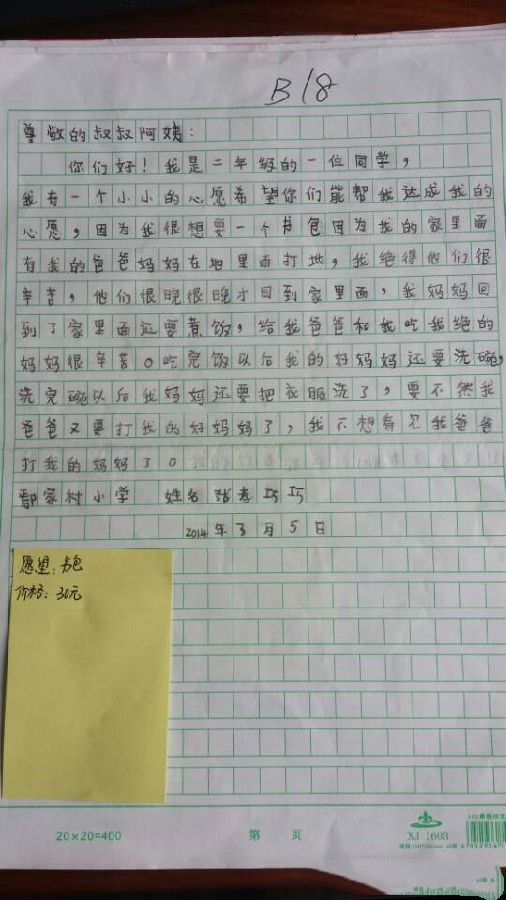 B18
尊敬的叔叔阿姨：
你们好！我是二年级的一位同学，
我有一个小小的心愿希望你们能帮我达成我的
心愿，因为我很想要一个书包因为我的家里面
有我的爸爸妈妈在地里面打地，我绝得他们很
辛苦，他们很晚很晚才回到家里面，我妈妈回
到了家里面还要煮饭，给我爸爸和我吃我绝的
妈妈很辛苦。吃完饭以后我的好妈妈还要洗碗，
洗完碗以后我妈妈还要把衣服洗了，要不然我
爸爸又要打我的好妈妈了，我不想看见我爸爸
打我的妈妈了。
鄢家村小学 姓名 张孝巧巧
2014年3月5日
愿望：书包
价格：30元
20×20=400 第 页 XJ 1603